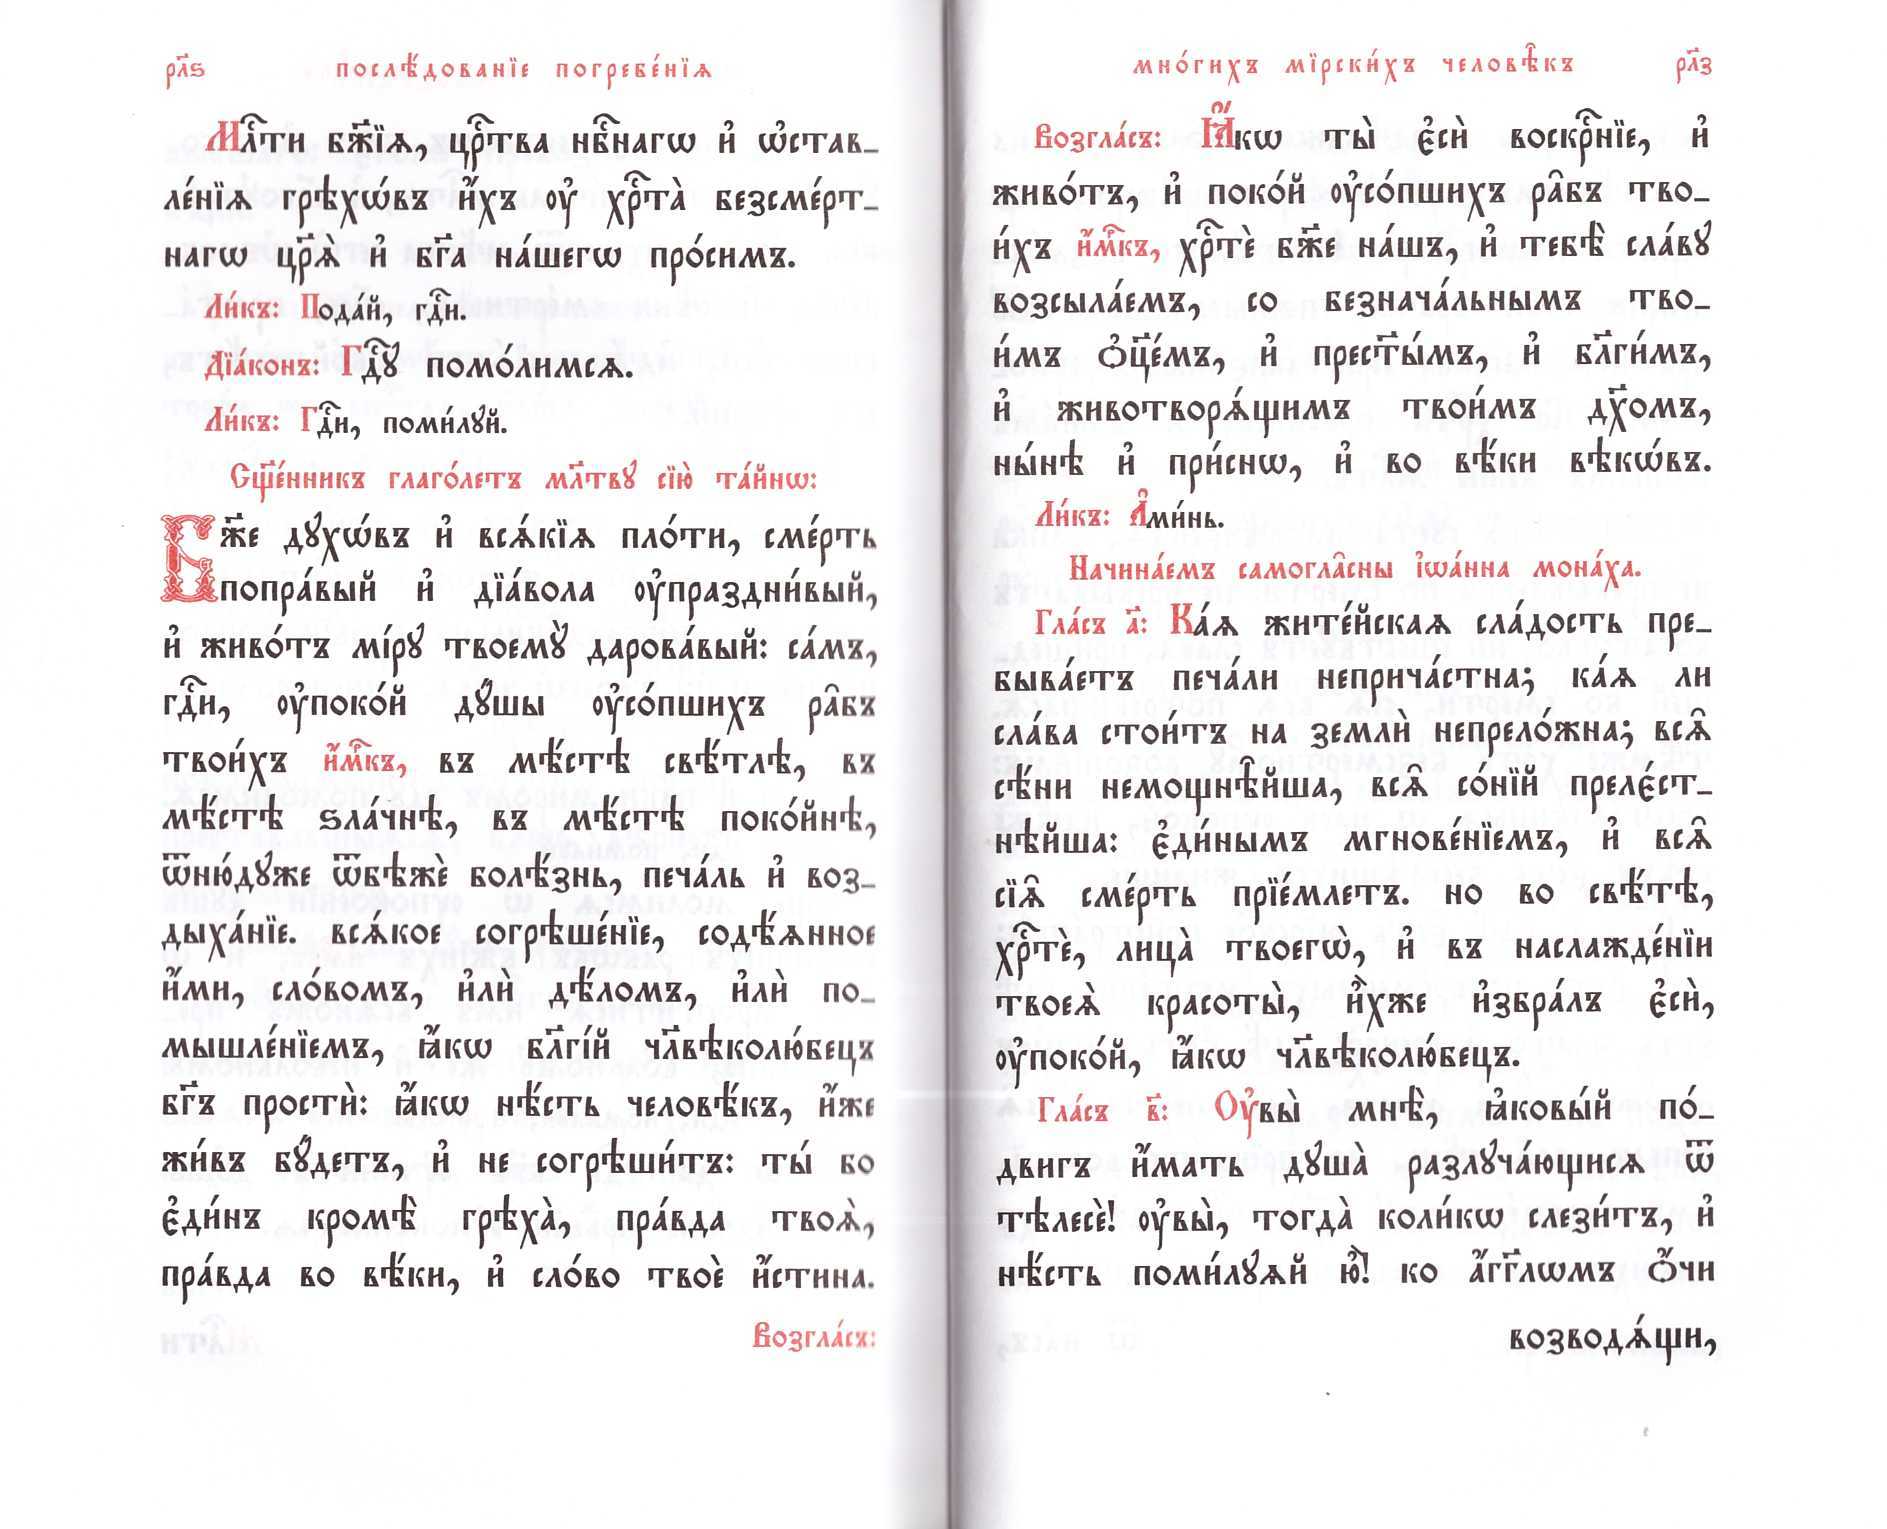 рл҃ѕ послѣ́дованїе погребе́нїѧ
Мл҇ти бж҃їѧ, црⷭ҇тва нбⷭ҇нагѡ и҆ ѡ҆став_
ле́нїѧ грѣхѡ́въ и҆́хъ ᲂу҆ хрⷭ҇та̀ безсме́рт_
нагѡ цр҃ѧ̀ и҆ бг҃а на́шегѡ про́симъ.
Ли́къ: Пода́й, гдⷭ҇и.
Дїа́конъ: Гдⷭ҇ꙋ помо́лимсѧ.
Ли́къ: Гдⷭ҇и, поми́лꙋй.
Сщ҃е́нникъ глаго́летъ мл҃твꙋ сїю̀ та́йнѡ:
Бж҃е дꙋхѡ́въ и҆ всѧ́кїѧ пло́ти, сме́рть
попра́вый и҆ дїа́вола ᲂу҆праздни́вый,
и҆ живо́тъ мі́рꙋ твоемꙋ̀ дарова́вый: са́мъ,
гдⷭ҇и, ᲂу҆поко́й дꙋ́шы ᲂу҆со́пшихъ ра̑бъ
твои́хъ и҆́м҃къ, въ мѣ́стѣ свѣ́тлѣ, въ
мѣ́стѣ ѕла́чнѣ, въ мѣ́стѣ поко́йнѣ,
ѿню́дꙋже ѿбѣжѐ болѣ́знь, печа́ль и҆ воз_
дыха́нїе. всѧ́кое согрѣше́нїе, содѣ́ѧнное
и҆́ми, сло́вомъ, и҆лѝ дѣ́ломъ, и҆лѝ по_
мышле́нїемъ, ꙗ҆́кѡ бл҃гі́й чл҃вѣколю́бецъ
бг҃ъ простѝ: ꙗ҆́кѡ нѣ́сть человѣ́къ, и҆́же
жи́въ бꙋ́детъ, и҆ не согрѣши́тъ: ты́ бо
є҆ди́нъ кромѣ̀ грѣха̀, пра́вда твоѧ̀,
пра́вда во вѣ́ки, и҆ сло́во твоѐ и҆́стина.
Возгла́съ:
мно́гихъ мїрски́хъ человѣ̑къ рл҃з
Возгла́съ: Ꙗ҆́кѡ ты̀ є҆сѝ воскрⷭ҇нїе, и҆
живо́тъ, и҆ поко́й ᲂу҆со́пшихъ ра̑бъ тво_
и́хъ и҆́м҃къ, хрⷭ҇тѐ бж҃е на́шъ, и҆ тебѣ̀ сла́вꙋ
возсыла́емъ, со безнача́льнымъ тво_
и́мъ ѻ҆ц҃е́мъ, и҆ прест҃ы́мъ, и҆ бл҃ги́мъ,
и҆ животворѧ́щимъ твои́мъ дх҃омъ,
ны́нѣ и҆ при́снѡ, и҆ во вѣ́ки вѣкѡ́въ.
Ли́къ: А҆ми́нь.
Начина́емъ самогла̑сны і҆ѡа́нна мона́ха.
Гла́съ а҃: Ка́ѧ жите́йскаѧ сла́дость пре_
быва́етъ печа́ли неприча́стна; ка́ѧ ли
сла́ва стои́тъ на землѝ непрело́жна; всѧ̑
сѣ́ни немощнѣ̑йша, всѧ̑ со́нїй преле́ст_
нѣйша: є҆ди́нымъ мгнове́нїемъ, и҆ всѧ̑
сїѧ̑ сме́рть прїе́млетъ. но во свѣ́тѣ,
хрⷭ҇тѐ, лица̀ твоегѡ̀, и҆ въ наслажде́нїи
твоеѧ̀ красоты̀, и҆̀хже и҆збра́лъ є҆сѝ,
ᲂу҆поко́й, ꙗ҆́кѡ чл҃вѣколю́бецъ.
Гла́съ в҃: Оу҆вы̀ мнѣ̀, ꙗ҆ковы́й по́_
двигъ и҆́мать дꙋша̀ разлꙋча́ющисѧ ѿ
тѣлесѐ! ᲂу҆вы̀, тогда̀ коли́кѡ слези́тъ, и҆
нѣ́сть поми́лꙋѧй ю҆̀! ко а҆́гг҃лѡмъ ѻ҆́чи
возводѧ́щи,